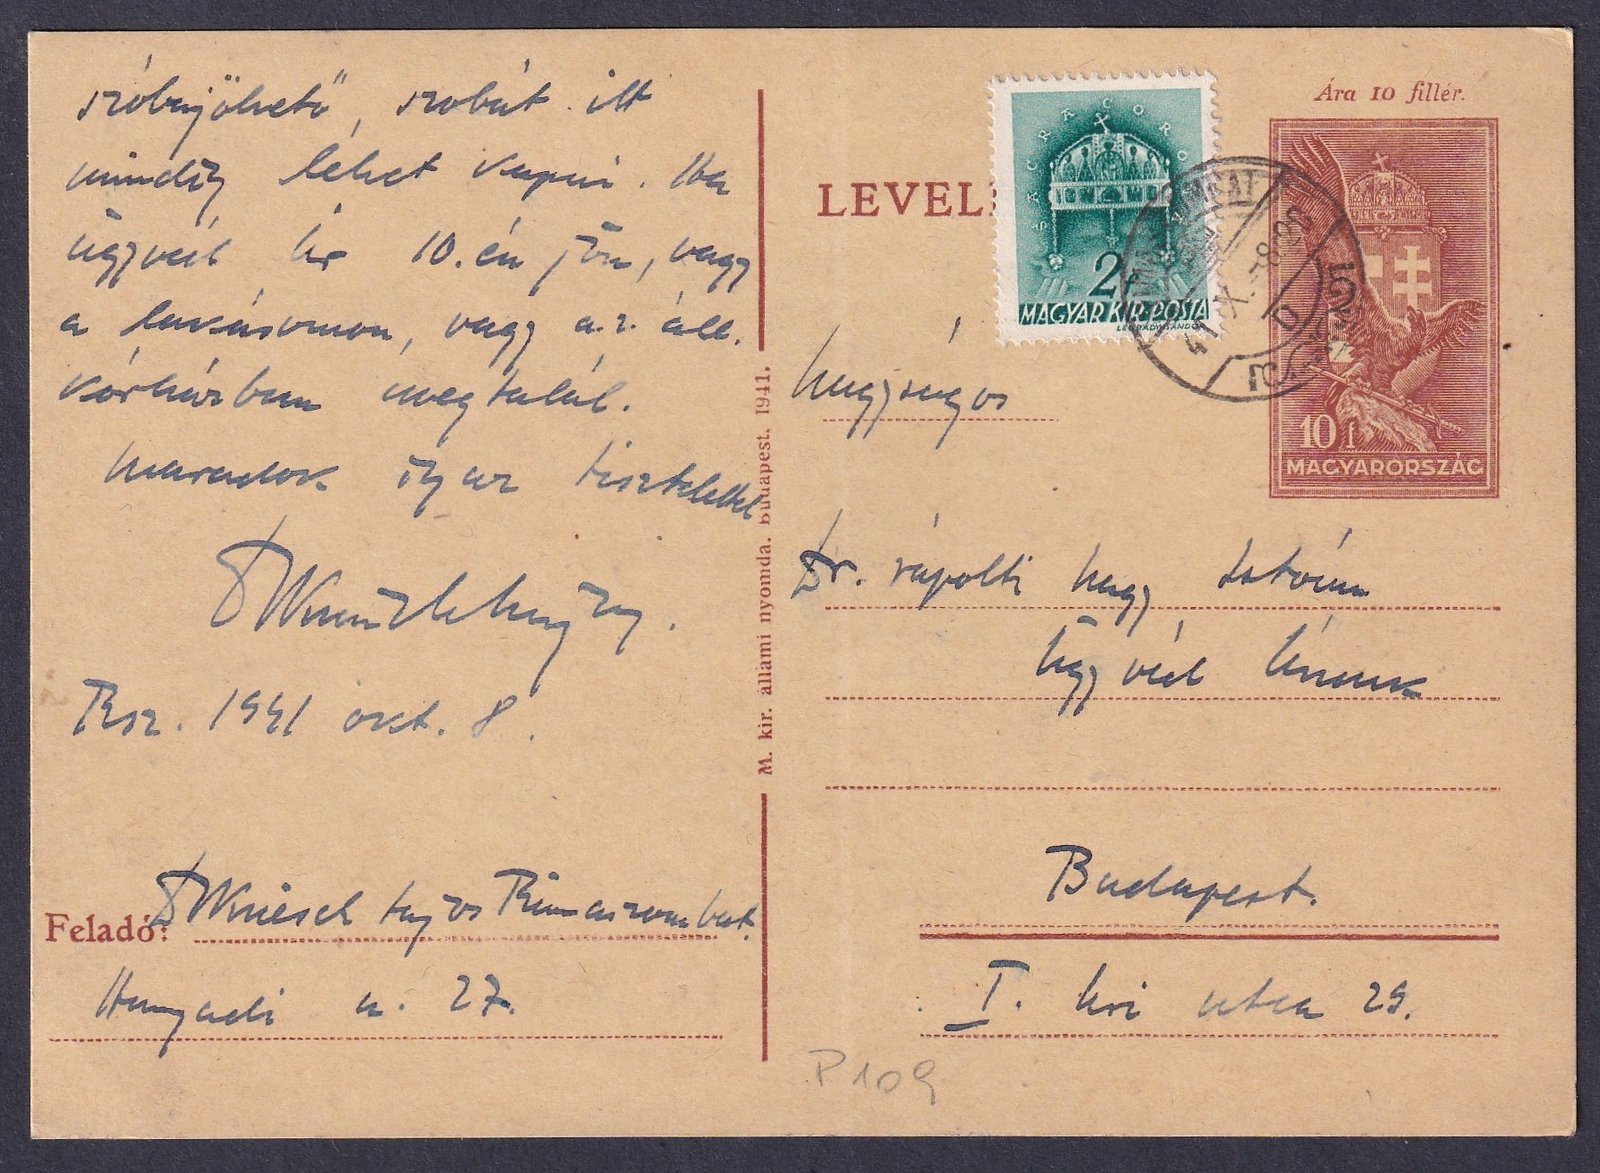 szóbajöhető, szobát itt
mindig lehet kapni. Ha
ügyvéd úr 10.én jön, vagy
a lakásomon, vagy a.z. áll.
kórházban megtalál.
Maradok igaz tisztelettel
Rsz. 1941 okt. 8.
Feladó: Rimaszombat.
Hunyadi u. 27.
M. kir. állami nyomda. Budapest. 1941.
Ára 10 fillér.
LEVEL
SACRA CORONA
2f
MAGYAR KIR. POSTA
LEGRÁDY SÁNDOR
10 f
MAGYARORSZÁG
Nagyságos
Dr. rápolti Nagy István
ügyvéd Úrnak
Budapest.
I. Úri utca 29.
P109